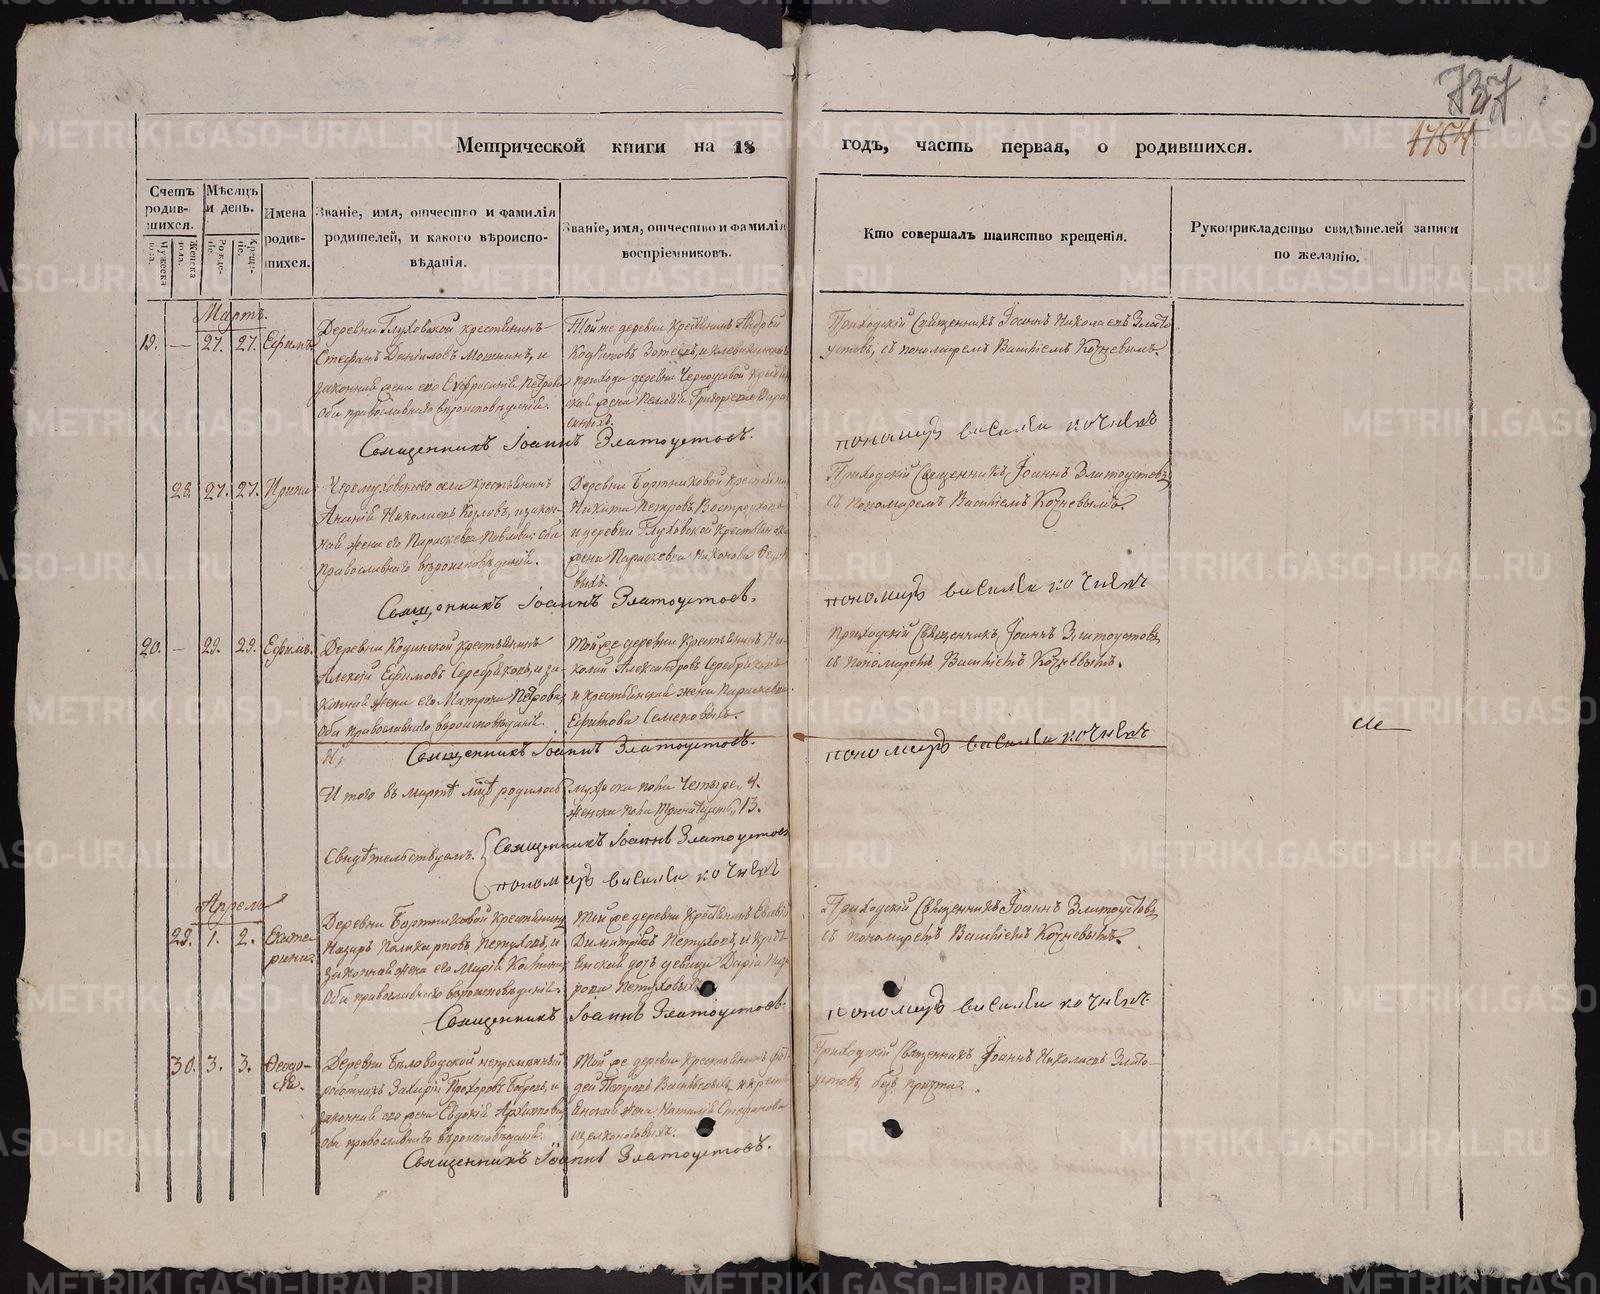 737
1754
Метрической книги на 18 годъ, часть первая, о родившихся.
Счетъ родив-шихся.
Мужеска пола.
Женска пола.
Мѣсяцъ и день.
Рожде-нie.
Креще-нie.
Имена родив-шихся.
Званіе, имя, отчество и фамилія родителей, и какого вѣроиспо-вѣданія.
Званіе, имя, отчество и фамилія воспріемниковъ.
Кто совершалъ таинство крещенія.
Рукоприкладство свидѣтелей записи по желанію.
Мартъ.
19. — 27. 27. Ефимъ
Деревни Глуховской крестьянинъ
Стефанъ Даніиловъ Мошнинъ, и
законная жена его Евфросинія Петрова
оба православнаго вѣроисповѣданія.
Той же деревни крестьянинъ Андрей
прихода деревни Черноусовой
жена Пелагія Григорьева
Приходскій Священникъ Іоаннъ Николаевъ Злато
устовъ, съ пономаремъ Василіемъ Кочневымъ.
Священникъ Іоаннъ Златоустовъ.
пономарь василеи кочневъ
28. 27. 27. Ирина
Черемуховскаго села крестьянинъ
Ананій Николаевъ Козловъ, и закон-
ная жена его Параскева Павлова; оба
православнаго вѣроисповѣданія.
Деревни Бортниковой крестьянинъ
Никита Петровъ
и деревни Глуховской
жена Параскева Никонова
Приходскій Священникъ, Іоаннъ Златоустовъ,
съ пономаремъ Василіемъ Кочневымъ.
Священникъ Іоаннъ Златоустовъ.
пономарь василеи кочневъ
20. — 29. 29. Ефимъ.
Деревни Кодинской крестьянинъ
Алексѣй Ефимовъ Серебряковъ, и за-
конная жена его Матрона Петрова;
оба православнаго вѣроисповѣданія.
Той же деревни крестьянинъ Ни-
колай Александровъ Серебряковъ
и крестьянская жена Параскева
Ефимова Семеновыхъ.
Приходскій Священникъ, Іоаннъ Златоустовъ,
съ пономаремъ Василіемъ Кочневымъ.
И,
Священникъ Іоаннъ Златоустовъ.
пономарь василеи кочневъ
Итого въ мартѣ мцѣ родилось
мужска пола Четыре,, 4.
женска пола тринадцать,, 13.
Свидѣтельствуемъ.
Священникъ Іоаннъ Златоустовъ
пономарь василеи кочневъ
Апрель
29. 1. 2. Екате-
рина.
Деревни Бортниковой крестьянинъ
Назаръ Поликарповъ Петуховъ, и
законная жена его Марія
оба православнаго вѣроисповѣданія.
Той же деревни крестьянинъ
Димитріевъ Петуховъ, и кресть-
янская дочь девица Дарія Наза-
рова Петуховыхъ
Приходскій Священникъ Іоаннъ Златоустовъ,
съ пономаремъ Василіемъ Кочневымъ.
Священникъ Іоаннъ Златоустовъ.
пономарь василеи кочневъ
30. 3. 3. Ѳеодо-
сія.
Деревни Бѣловодской непремѣнный
работникъ Захарій Прохоровъ Бобровъ, и
законная его жена Евдокія Архипова,
оба православнаго вѣроисповѣданія.
Той же деревни крестьянинъ
Петровъ Васильевыхъ, и кресть-
янская жена Наталія Стефанова
Щелконоговыхъ.
Приходскій Священникъ Іоаннъ Николаевъ Злато-
устовъ, безъ причта.
Священникъ Іоаннъ Златоустовъ.
METRIKI.GASO-URAL.RU